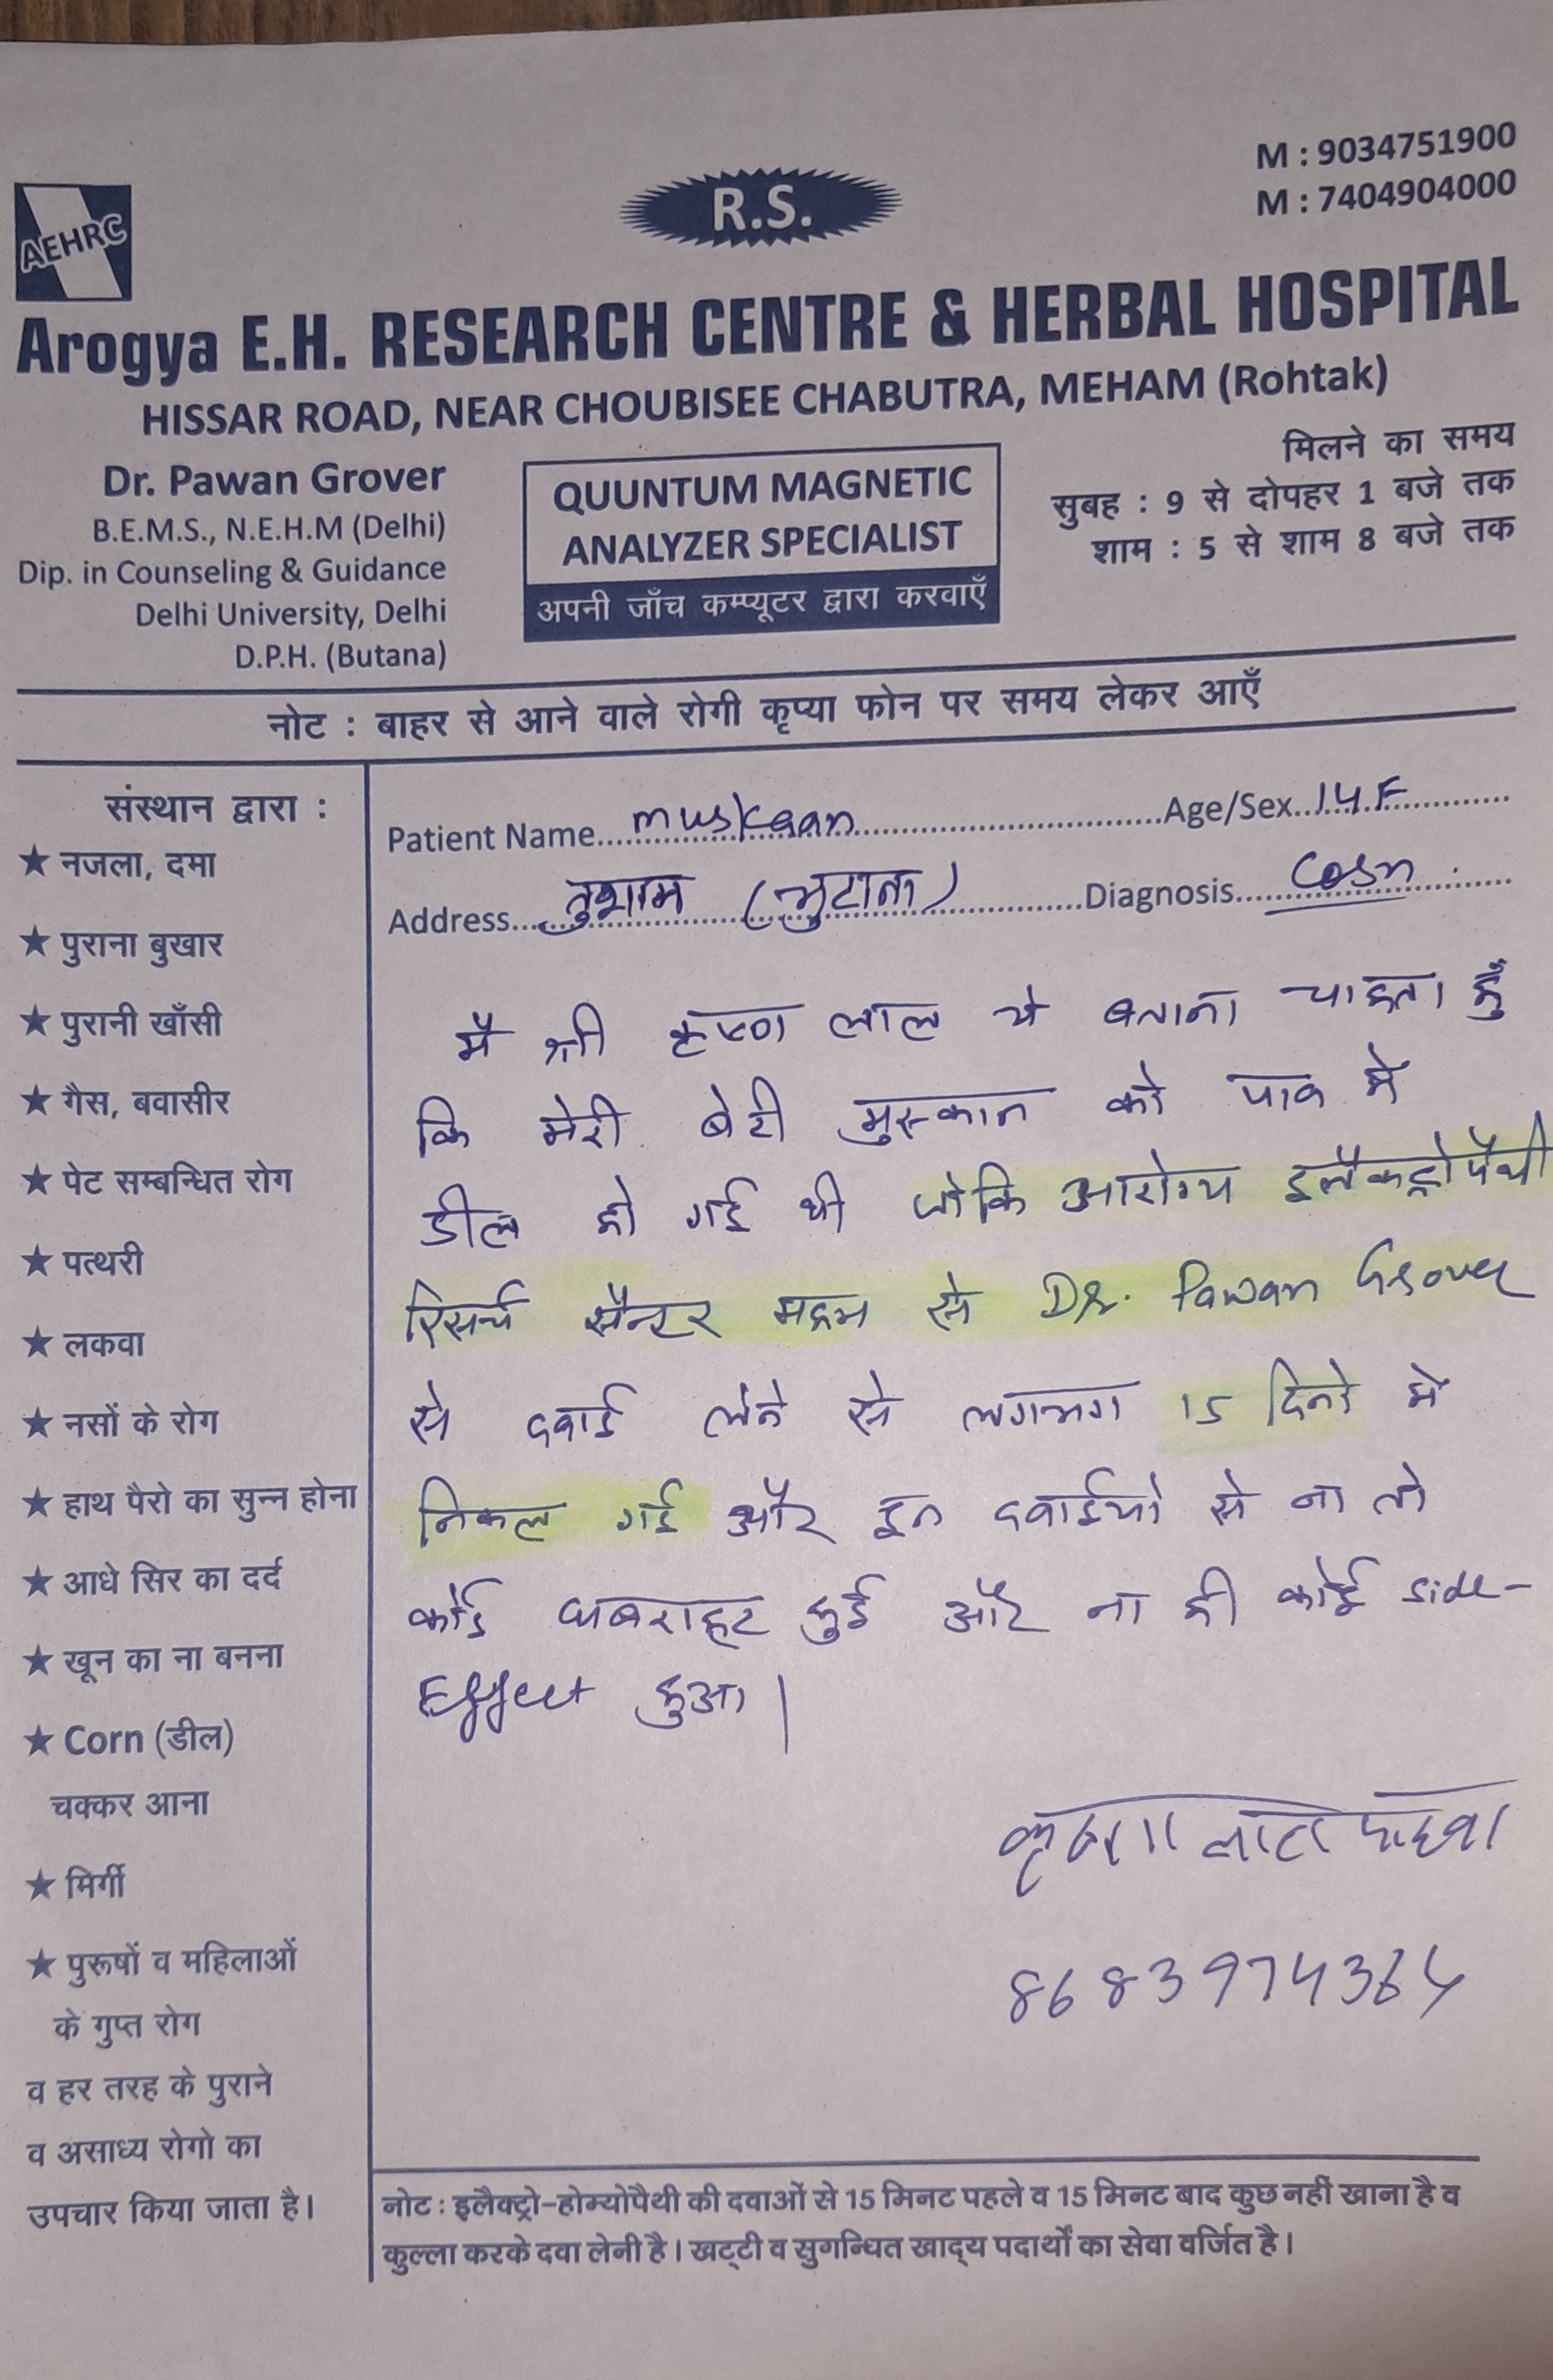 M : 9034751900
M : 7404904000
AEHRC
R.S.
Arogya E.H. RESEARCH CENTRE & HERBAL HOSPITAL
HISSAR ROAD, NEAR CHOUBISEE CHABUTRA, MEHAM (Rohtak)
Dr. Pawan Grover
B.E.M.S., N.E.H.M (Delhi)
Dip. in Counseling & Guidance
Delhi University, Delhi
D.P.H. (Butana)
QUUNTUM MAGNETIC
ANALYZER SPECIALIST
अपनी जाँच कम्प्यूटर द्वारा करवाएँ
मिलने का समय
सुबह : 9 से दोपहर 1 बजे तक
शाम : 5 से शाम 8 बजे तक
नोट : बाहर से आने वाले रोगी कृप्या फोन पर समय लेकर आएँ
संस्थान द्वारा :
★ नजला, दमा
★ पुराना बुखार
★ पुरानी खाँसी
★ गैस, बवासीर
★ पेट सम्बन्धित रोग
★ पत्थरी
★ लकवा
★ नसों के रोग
★ हाथ पैरो का सुन्न होना
★ आधे सिर का दर्द
★ खून का ना बनना
★ Corn (डील)
चक्कर आना
★ मिर्गी
★ पुरूषों व महिलाओं
के गुप्त रोग
व हर तरह के पुराने
व असाध्य रोगो का
उपचार किया जाता है।
Patient Name muskaan Age/Sex 14 F
Address तुशाम (भुटाना) Diagnosis Corn
मै श्री कृष्ण लाल ये बताना चाहता हुँ
कि मेरी बेटी मुस्कान को पाव मे
डील हो गई थी जोकि आरोग्य इलैक्ट्रोपैथी
रिसर्च सैन्टर महम से Dr. Pawan Grover
से दवाई लेने से लगभग 15 दिनो मे
निकल गई और इन दवाईयो से ना तो
कोई घबराहट हुई और ना ही कोई side-
Effect हुआ।
कृष्ण लाल
8683974364
नोट : इलैक्ट्रो-होम्योपैथी की दवाओं से 15 मिनट पहले व 15 मिनट बाद कुछ नहीं खाना है व
कुल्ला करके दवा लेनी है। खट्टी व सुगन्धित खाद्य पदार्थों का सेवा वर्जित है।